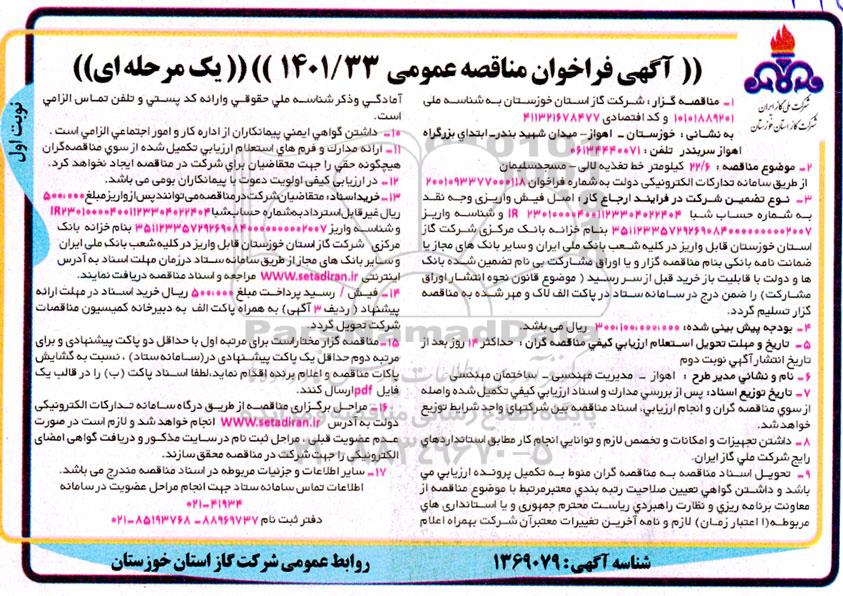 (( آگهی فراخوان مناقصه عمومی ۱۴۰۱/۳۳ )) (( یک مرحله ای))
شرکت ملی گاز ایران
شرکت گاز استان خوزستان
نوبت اول
۱ – مناقصه گزار : شرکت گاز استان خوزستان به شناسه ملی
۱۰۱۰۱۸۸۹۲۰۱ و کد اقتصادی ۴۱۱۳۲۱۶۷۸۴۷۷
به نشانی : خوزستان – اهواز– میدان شهید بندر– ابتدای بزرگراه
اهواز سربندر تلفن : ۰۶۱۳۴۴۴۰۰۷۱
۲– موضوع مناقصه : ۲۲/۶ کیلومتر خط تغذیه لالی – مسجدسلیمان
از طریق سامانه تدارکات الکترونیکی دولت به شماره فراخوان ۲۰۰۱۰۹۳۳۷۷۰۰۰۱۱۸
۳– نوع تضمین شرکت در فرایند ارجاع کار : اصل فیش واریزی وجه نقد
به شماره حساب شبا IR ۲۳۰۱۰۰۰۰۴۰۰۱۱۲۳۳۰۴۰۲۲۴۰۴ و شناسه واریز
۳۵۱۱۲۳۳۵۷۲۹۲۶۹۰۸۴۰۰۰۰۰۰۰۰۰۰۰۰۷ بنام خزانه بانک مرکزی شرکت گاز
استان خوزستان قابل واریز در کلیه شعب بانک ملی ایران و سایر بانک های مجاز یا
ضمانت نامه بانکی بنام مناقصه گزار و یا اوراق مشارکت بی نام تضمین شده بانک
ها و دولت با قابلیت باز خرید قبل از سر رسید ( موضوع قانون نحوه انتشار اوراق
مشارکت) را ضمن درج در سامانه ستاد در پاکت الف لاک و مهر شده به مناقصه
گزار تسلیم گردد.
۴– بودجه پیش بینی شده: ۳۰۰،۱۰۰،۰۰۰،۰۰۰ ریال می باشد.
۵– تاریخ و مهلت تحویل استعلام ارزیابی کیفی مناقصه گران : حداکثر ۱۴ روز بعد از
تاریخ انتشار آگهی نوبت دوم
۶– نام و نشانی مدیر طرح : اهواز – مدیریت مهندسی – ساختمان مهندسی
۷– تاریخ توزیع اسناد: پس از بررسی مدارک و اسناد ارزیابی کیفی تکمیل شده واصله
از سوی مناقصه گران و انجام ارزیابی، اسناد مناقصه بین شرکتهای واجد شرایط توزیع
خواهد شد.
۸– داشتن تجهیزات و امکانات و تخصص لازم و توانایی انجام کار مطابق استانداردهای
رایج شرکت ملی گاز ایران.
۹– تحویل اسناد مناقصه به مناقصه گران منوط به تکمیل پرونده ارزیابی می
باشد و داشتن گواهی تعیین صلاحیت رتبه بندی معتبر مرتبط با موضوع مناقصه از
معاونت برنامه ریزی و نظارت راهبردی ریاست محترم جمهوری و یا استانداری های
مربوطه(با اعتبار زمان) لازم و نامه آخرین تغییرات معتبر آن شرکت بهمراه اعلام
آمادگی و ذکر شناسه ملی حقوقی و ارائه کد پستی و تلفن تماس الزامی
است.
۱۰– داشتن گواهی ایمنی پیمانکاران از اداره کار و امور اجتماعی الزامی است .
۱۱– ارائه مدارک و فرم های استعلام ارزیابی تکمیل شده از سوی مناقصه گران
هیچگونه حقی را جهت متقاضیان برای شرکت در مناقصه ایجاد نخواهد کرد.
۱۲– در ارزیابی کیفی اولویت دعوت با پیمانکاران بومی می باشد.
۱۳– خرید اسناد: متقاضیان شرکت در مناقصه می توانند پس از واریز مبلغ ۵۰۰،۰۰۰
ریال غیر قابل استرداد به شماره حساب شبا IR۲۳۰۱۰۰۰۰۴۰۰۱۱۲۳۳۰۴۰۲۲۴۰۴
و شناسه واریز ۳۵۱۱۲۳۳۵۷۲۹۲۶۹۰۸۴۰۰۰۰۰۰۰۰۰۰۰۰۷ بنام خزانه بانک
مرکزی شرکت گاز استان خوزستان قابل واریز در کلیه شعب بانک ملی ایران
و سایر بانک های مجاز از طریق سامانه ستاد در زمان مهلت اسناد به آدرس
اینترنتی www.setadiran.ir مراجعه و اسناد مناقصه دریافت نمایند.
۱۴– فیش / رسید پرداخت مبلغ ۵۰۰،۰۰۰ ریال خرید اسناد در مهلت ارائه
پیشنهاد ( ردیف ۳ آگهی) به همراه پاکت الف به دبیرخانه کمیسیون مناقصات
شرکت تحویل گردد.
۱۵– مناقصه گزار مختار است برای مرتبه اول با حداقل دو پاکت پیشنهادی و برای
مرتبه دوم حداقل یک پاکت پیشنهادی در(سامانه ستاد) ، نسبت به گشایش
پاکات مناقصه و اعلام برنده اقدام نماید،لطفا اسناد پاکت (ب) را در قالب یک
فایل pdf ارسال کنند.
۱۶– مراحل برگزاری مناقصه از طریق درگاه سامانه تدارکات الکترونیکی
دولت به آدرس www.setadiran.ir انجام خواهد شد و لازم است در صورت
عدم عضویت قبلی، مراحل ثبت نام در سایت مذکور و دریافت گواهی امضای
الکترونیکی را جهت شرکت در مناقصه محقق سازند.
۱۷– سایر اطلاعات و جزئیات مربوطه در اسناد مناقصه مندرج می باشد.
اطلاعات تماس سامانه ستاد جهت انجام مراحل عضویت در سامانه
۰۲۱–۴۱۹۳۴
دفتر ثبت نام ۸۸۹۶۹۷۳۷ – ۰۲۱–۸۵۱۹۳۷۶۸
شناسه آگهی: ۱۳۶۹۰۷۹
روابط عمومی شرکت گاز استان خوزستان